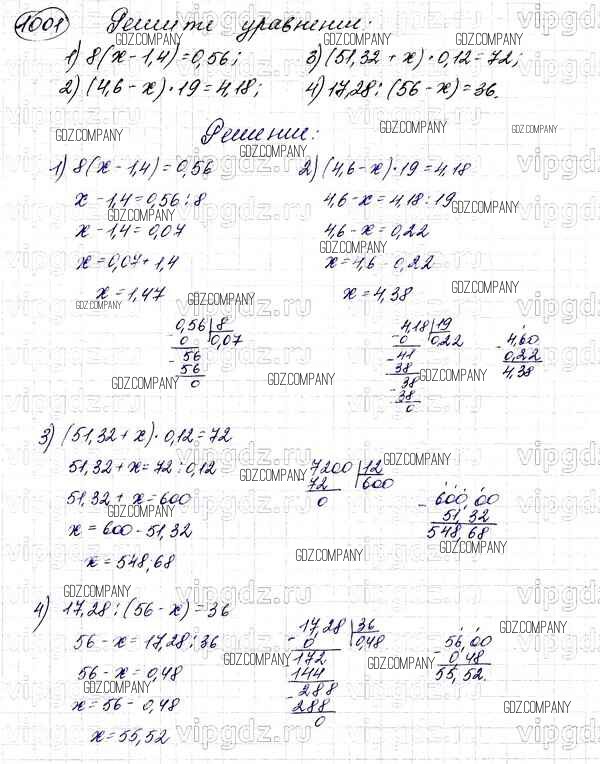 1001 Решите уравнения:
1) 8(x - 1,4) = 0,56; 3) (51,32 + x) · 0,12 = 72;
2) (4,6 - x) · 19 = 4,18; 4) 17,28 : (56 - x) = 36.
Решение:
1) 8(x - 1,4) = 0,56
x - 1,4 = 0,56 : 8
x - 1,4 = 0,07
x = 0,07 + 1,4
x = 1,47
0,56 | 8
- 0 0,07
56
- 56
0
2) (4,6 - x) · 19 = 4,18
4,6 - x = 4,18 : 19
4,6 - x = 0,22
x = 4,6 - 0,22
x = 4,38
4,18 | 19
- 0 0,22
41
- 38
38
- 38
0
4,60
- 0,22
4,38
3) (51,32 + x) · 0,12 = 72
51,32 + x = 72 : 0,12
51,32 + x = 600
x = 600 - 51,32
x = 548,68
7200 | 12
- 72 600
0
600,00
- 51,32
548,68
4) 17,28 : (56 - x) = 36
56 - x = 17,28 : 36
56 - x = 0,48
x = 56 - 0,48
x = 55,52
17,28 | 36
- 0 0,48
172
- 144
288
- 288
0
56,00
- 0,48
55,52.
GDZ.COMPANY
vipgdz.ru